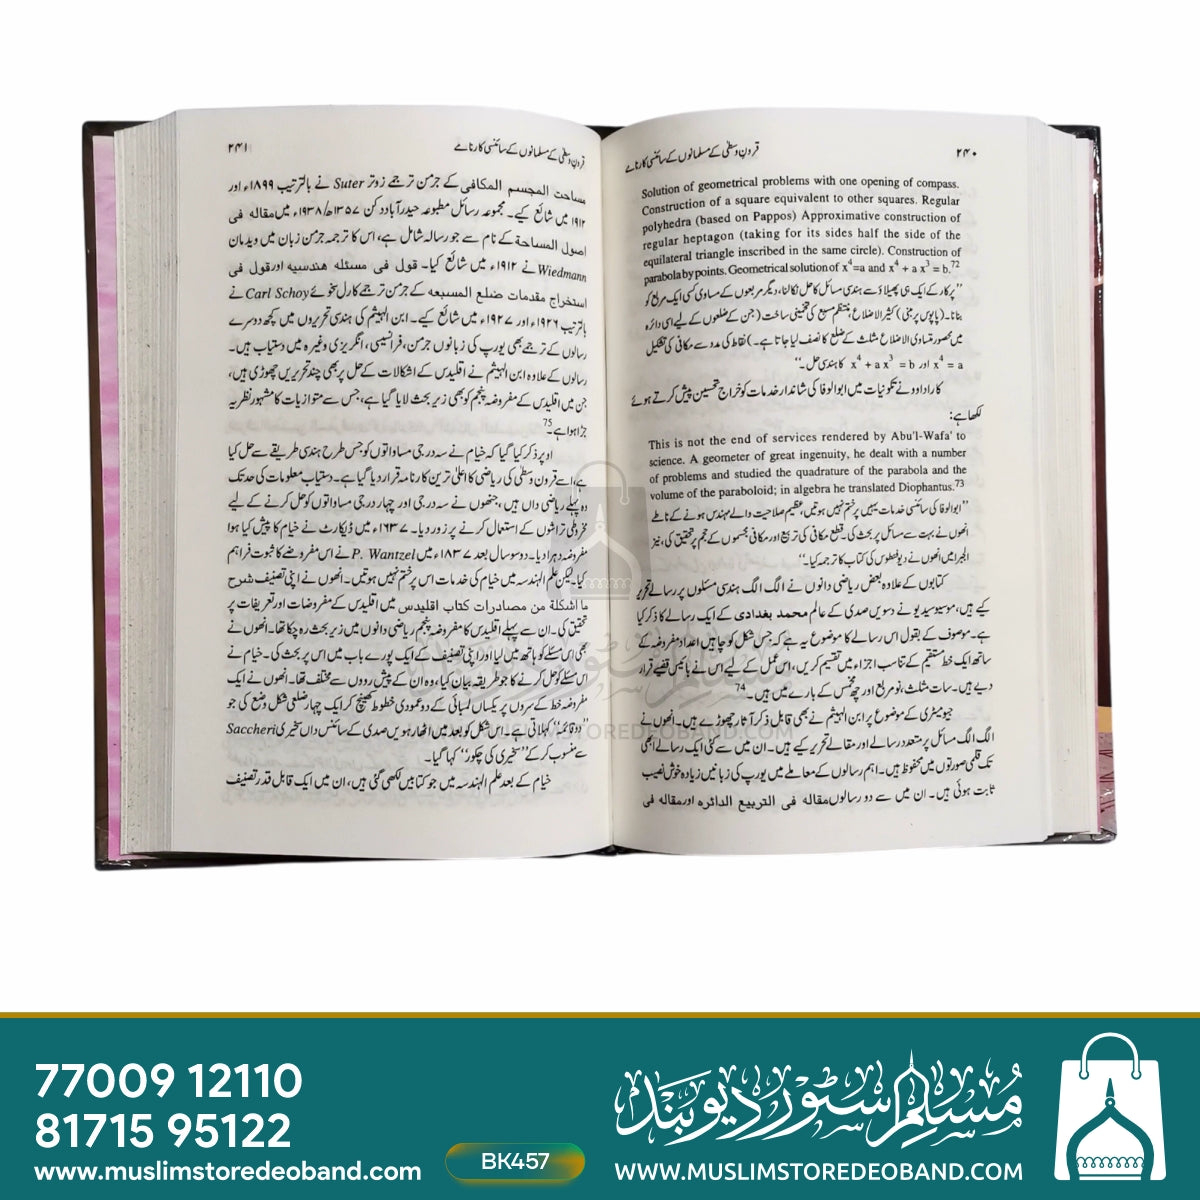 ۲۴۰
قرونِ وسطیٰ کے مسلمانوں کے سائنسی کارنامے
Solution of geometrical problems with one opening of compass.
Construction of a square equivalent to other squares. Regular
polyhedra (based on Pappos) Approximative construction of
regular heptagon (taking for its sides half the side of the
equilateral triangle inscribed in the same circle). Construction of
parabola by points. Geometrical solution of x⁴=a and x⁴ + a x³ = b.⁷²
"پرکار کے ایک ہی پھیلاؤ سے ہندسی مسائل کا حل نکالنا، دیگر مربعوں کے مساوی کسی ایک مربع کو
بنانا۔ (پاپوس پر مبنی) کثیر الاضلاع منتظم مسبع کی تخمینی ساخت (جن کے ضلعوں کے لیے اسی دائرہ
میں محصور متساوی الاضلاع مثلث کے ضلع کا نصف لیا جاتا ہے۔) نقاط کی مدد سے مکافی کی تشکیل
x⁴ = a اور x⁴ + a x³ = b کا ہندسی حل۔"
کارادوو نے تکونیات میں ابوالوفا کی شاندار خدمات کو خراج تحسین پیش کرتے ہوئے
لکھا ہے:
This is not the end of services rendered by Abu'l-Wafa' to
science. A geometer of great ingenuity, he dealt with a number
of problems and studied the quadrature of the parabola and the
volume of the paraboloid; in algebra he translated Diophantus.⁷³
"ابوالوفا کی سائنسی خدمات یہیں پر ختم نہیں ہوتیں، عظیم صلاحیت والے مہندس ہونے کے ناطے
انھوں نے بہت سے مسائل پر بحث کی۔ قطع مکافی کی تربیع اور مکافی مجسموں کے حجم پر تحقیق کی، نیز
الجبرا میں انھوں نے دیوفنطوس کی کتاب کا ترجمہ کیا۔"
کتابوں کے علاوہ بعض ریاضی دانوں نے الگ الگ ہندسی مسئلوں پر رسالے تحریر
کیے ہیں، موسیو سیدیو نے دسویں صدی کے عالم محمد بغدادی کے ایک رسالے کا ذکر کیا
ہے۔ موصوف کے بقول اس رسالے کا موضوع یہ ہے کہ جس شکل کو چاہیں اعداد مفروضہ کے
ساتھ ایک خط مستقیم کے تناسب اجزاء میں تقسیم کریں، اس عمل کے لیے اس نے بائیس قضیے قرار
دیے ہیں۔ سات مثلث، نو مربع اور چھ مخمس کے بارے میں ہیں۔⁷⁴
جیومیٹری کے موضوع پر ابن الہیثم نے بھی قابل ذکر آثار چھوڑے ہیں۔ انھوں نے
الگ الگ مسائل پر متعدد رسالے اور مقالے تحریر کیے ہیں۔ ان میں سے کئی ایک رسالے ابھی
تک قلمی صورتوں میں محفوظ ہیں۔ اہم رسالوں کے معاملے میں یورپ کی زبانیں زیادہ خوش نصیب
ثابت ہوئی ہیں۔ ان میں سے دو رسالوں مقالہ فی التربیع الدائرہ اور مقالہ فی
۲۴۱
قرونِ وسطیٰ کے مسلمانوں کے سائنسی کارنامے
مساحت المجسم المکافی کے جرمن ترجمے زوتر Suter نے بالترتیب ۱۸۹۹ء اور
۱۹۱۲ میں شائع کیے۔ مجموعہ رسائل مطبوعہ حیدرآباد دکن ۱۳۵۷ھ/۱۹۳۸ء میں مقالہ فی
اصول المساحۃ کے نام سے جو رسالہ شامل ہے، اس کا ترجمہ جرمن زبان میں ویدمان
Wiedmann نے ۱۹۱۲ء میں شائع کیا۔ قول فی مسئلہ ہندسیہ اور قول فی
استخراج مقدمات ضلع المسبعہ کے جرمن ترجمے کارل سخوئے Carl Schoy نے
بالترتیب ۱۹۲۶ء اور ۱۹۲۷ء میں شائع کیے۔ ابن الہیثم کی ہندسی تحریروں میں کچھ دوسرے
رسالوں کے ترجمے بھی یورپ کی زبانوں جرمن، فرانسیسی، انگریزی وغیرہ میں دستیاب ہیں۔
رسالوں کے علاوہ ابن الہیثم نے اقلیدس کے اشکالات کے حل پر بھی چند تحریریں چھوڑی ہیں،
جن میں اقلیدس کے مفروضہ پنجم کو بھی زیر بحث لایا گیا ہے، جس سے متوازیات کا مشہور نظریہ
جڑا ہوا ہے۔⁷⁵
اوپر ذکر کیا گیا کہ خیام نے سہ درجی مساواتوں کو جس طرح ہندسی طریقے سے حل کیا
ہے، اسے قرون وسطیٰ کی ریاضی کا اعلیٰ ترین کارنامہ قرار دیا گیا ہے۔ دستیاب معلومات کی حد تک
وہ پہلے ریاضی داں ہیں، جنھوں نے سہ درجی اور چہار درجی مساواتوں کو حل کرنے کے لیے
مخروطی تراشوں کے استعمال کرنے پر زور دیا۔ ۱۶۳۷ء میں ڈیکارٹ نے خیام کا پیش کیا ہوا
مفروضہ دہرا دیا۔ دو سو سال بعد ۱۸۳۷ء میں P. Wantzel نے اس مفروضے کا ثبوت فراہم
کیا۔ لیکن علم الہندسہ میں خیام کی خدمات اس پر ختم نہیں ہوتیں۔ انھوں نے اپنی تصنیف شرح
ما اشکلۃ من مصادرات کتاب اقلیدس میں اقلیدس کے مفروضات اور تعریفات پر
تحقیق کی۔ ان سے پہلے اقلیدس کا مفروضہ پنجم ریاضی دانوں میں زیر بحث رہ چکا تھا۔ انھوں نے
بھی اس مسئلے کو ہاتھ میں لیا اور اپنی تصنیف کے ایک پورے باب میں اس پر بحث کی۔ خیام نے
اس مسئلے کو حل کرنے کا جو طریقہ بیان کیا، وہ ان کے پیش روؤں سے مختلف تھا۔ انھوں نے ایک
مفروضہ خط کے سروں پر یکساں لمبائی کے دو عمودی خطوط کھینچ کر ایک چہار ضلعی شکل وضع کی جو
"دو قائمہ" کہلاتی ہے۔ اس شکل کو بعد میں اٹھارہویں صدی کے سائنس داں سخیری Saccheri
سے منسوب کر کے "سخیری کی چکور" کہا گیا۔
خیام کے بعد علم الہندسہ میں جو کتابیں لکھی گئی ہیں، ان میں ایک قابل قدر تصنیف
مسلم سٹور دیوبند
WWW.MUSLIMSTOREDEOBAND.COM
77009 12110
81715 95122
www.muslimstoredeoband.com
BK457
مسلم سٹور دیوبند
WWW.MUSLIMSTOREDEOBAND.COM